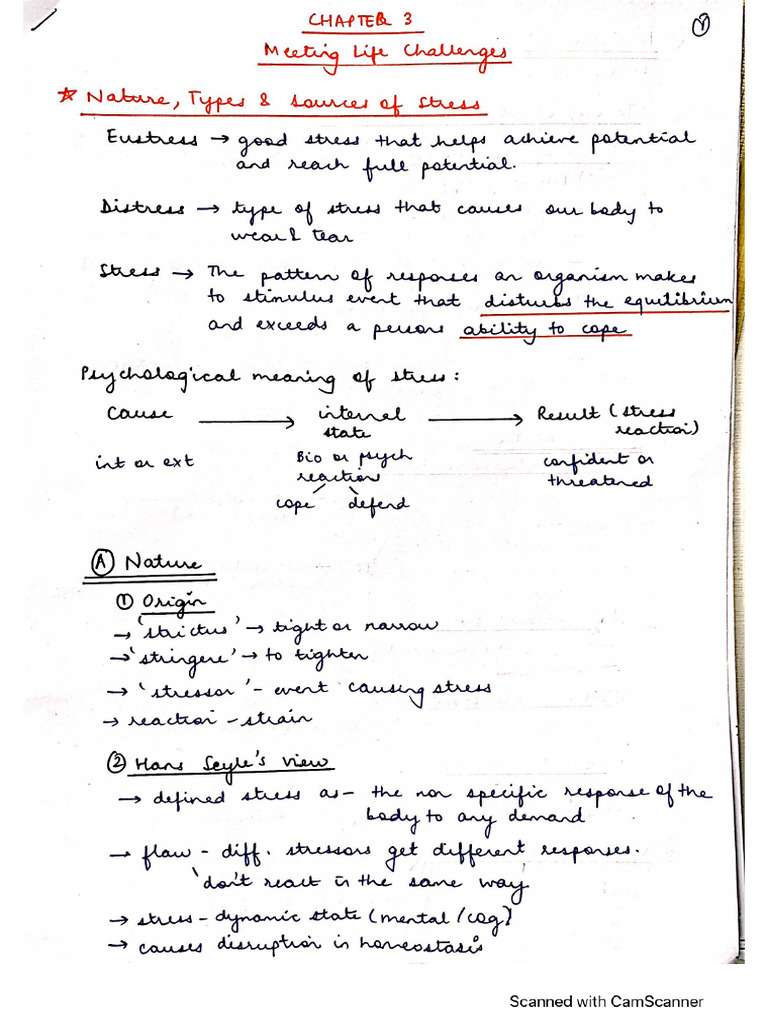 CHAPTER 3
Meeting Life Challenges
* Nature, Types & Sources of Stress
Eustress → good stress that helps achieve potential
and reach full potential.
Distress → type of stress that causes our body to
wear & tear
Stress → The pattern of responses an organism makes
to stimulus event that disturbs the equilibrium
and exceeds a persons ability to cope
Psychological meaning of stress:
Cause → internal → Result (stress
state reaction)
int or ext Bio or psych confident or
reaction threatened
cope defend
(A) Nature
① Origin
→ 'strictus' → tight or narrow
→ 'stringere' → to tighten
→ 'stressor' - event causing stress
→ reaction - strain
② Hans Seyle's view
→ defined stress as - the non specific response of the
body to any demand
→ flaw - diff. stressors get different responses.
don't react in the same way
→ stress - dynamic state (mental / cog)
→ causes disruption in homeostasis
Scanned with CamScanner